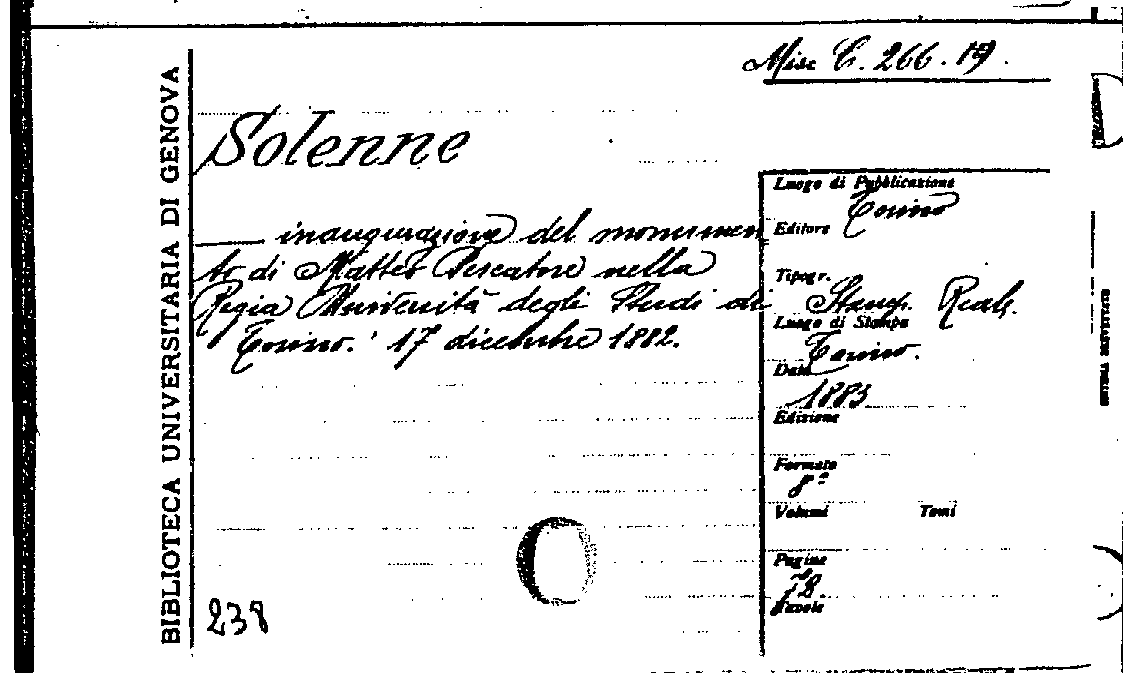 Misc C. 266. 19.
BIBLIOTECA UNIVERSITARIA DI GENOVA
Solenne
inaugurazione del monumen
to di Matteo Pescatore nella
Regia Università degli Studi di
Torino. 17 dicembre 1882.
238
Luogo di Pubblicazione
Torino
Editore
Tipogr.
Stamp. Reale.
Luogo di Stampa
Torino.
Data
1883
Edizione
Formato
8º
Volumi Tomi
Pagine
78.
Tavole